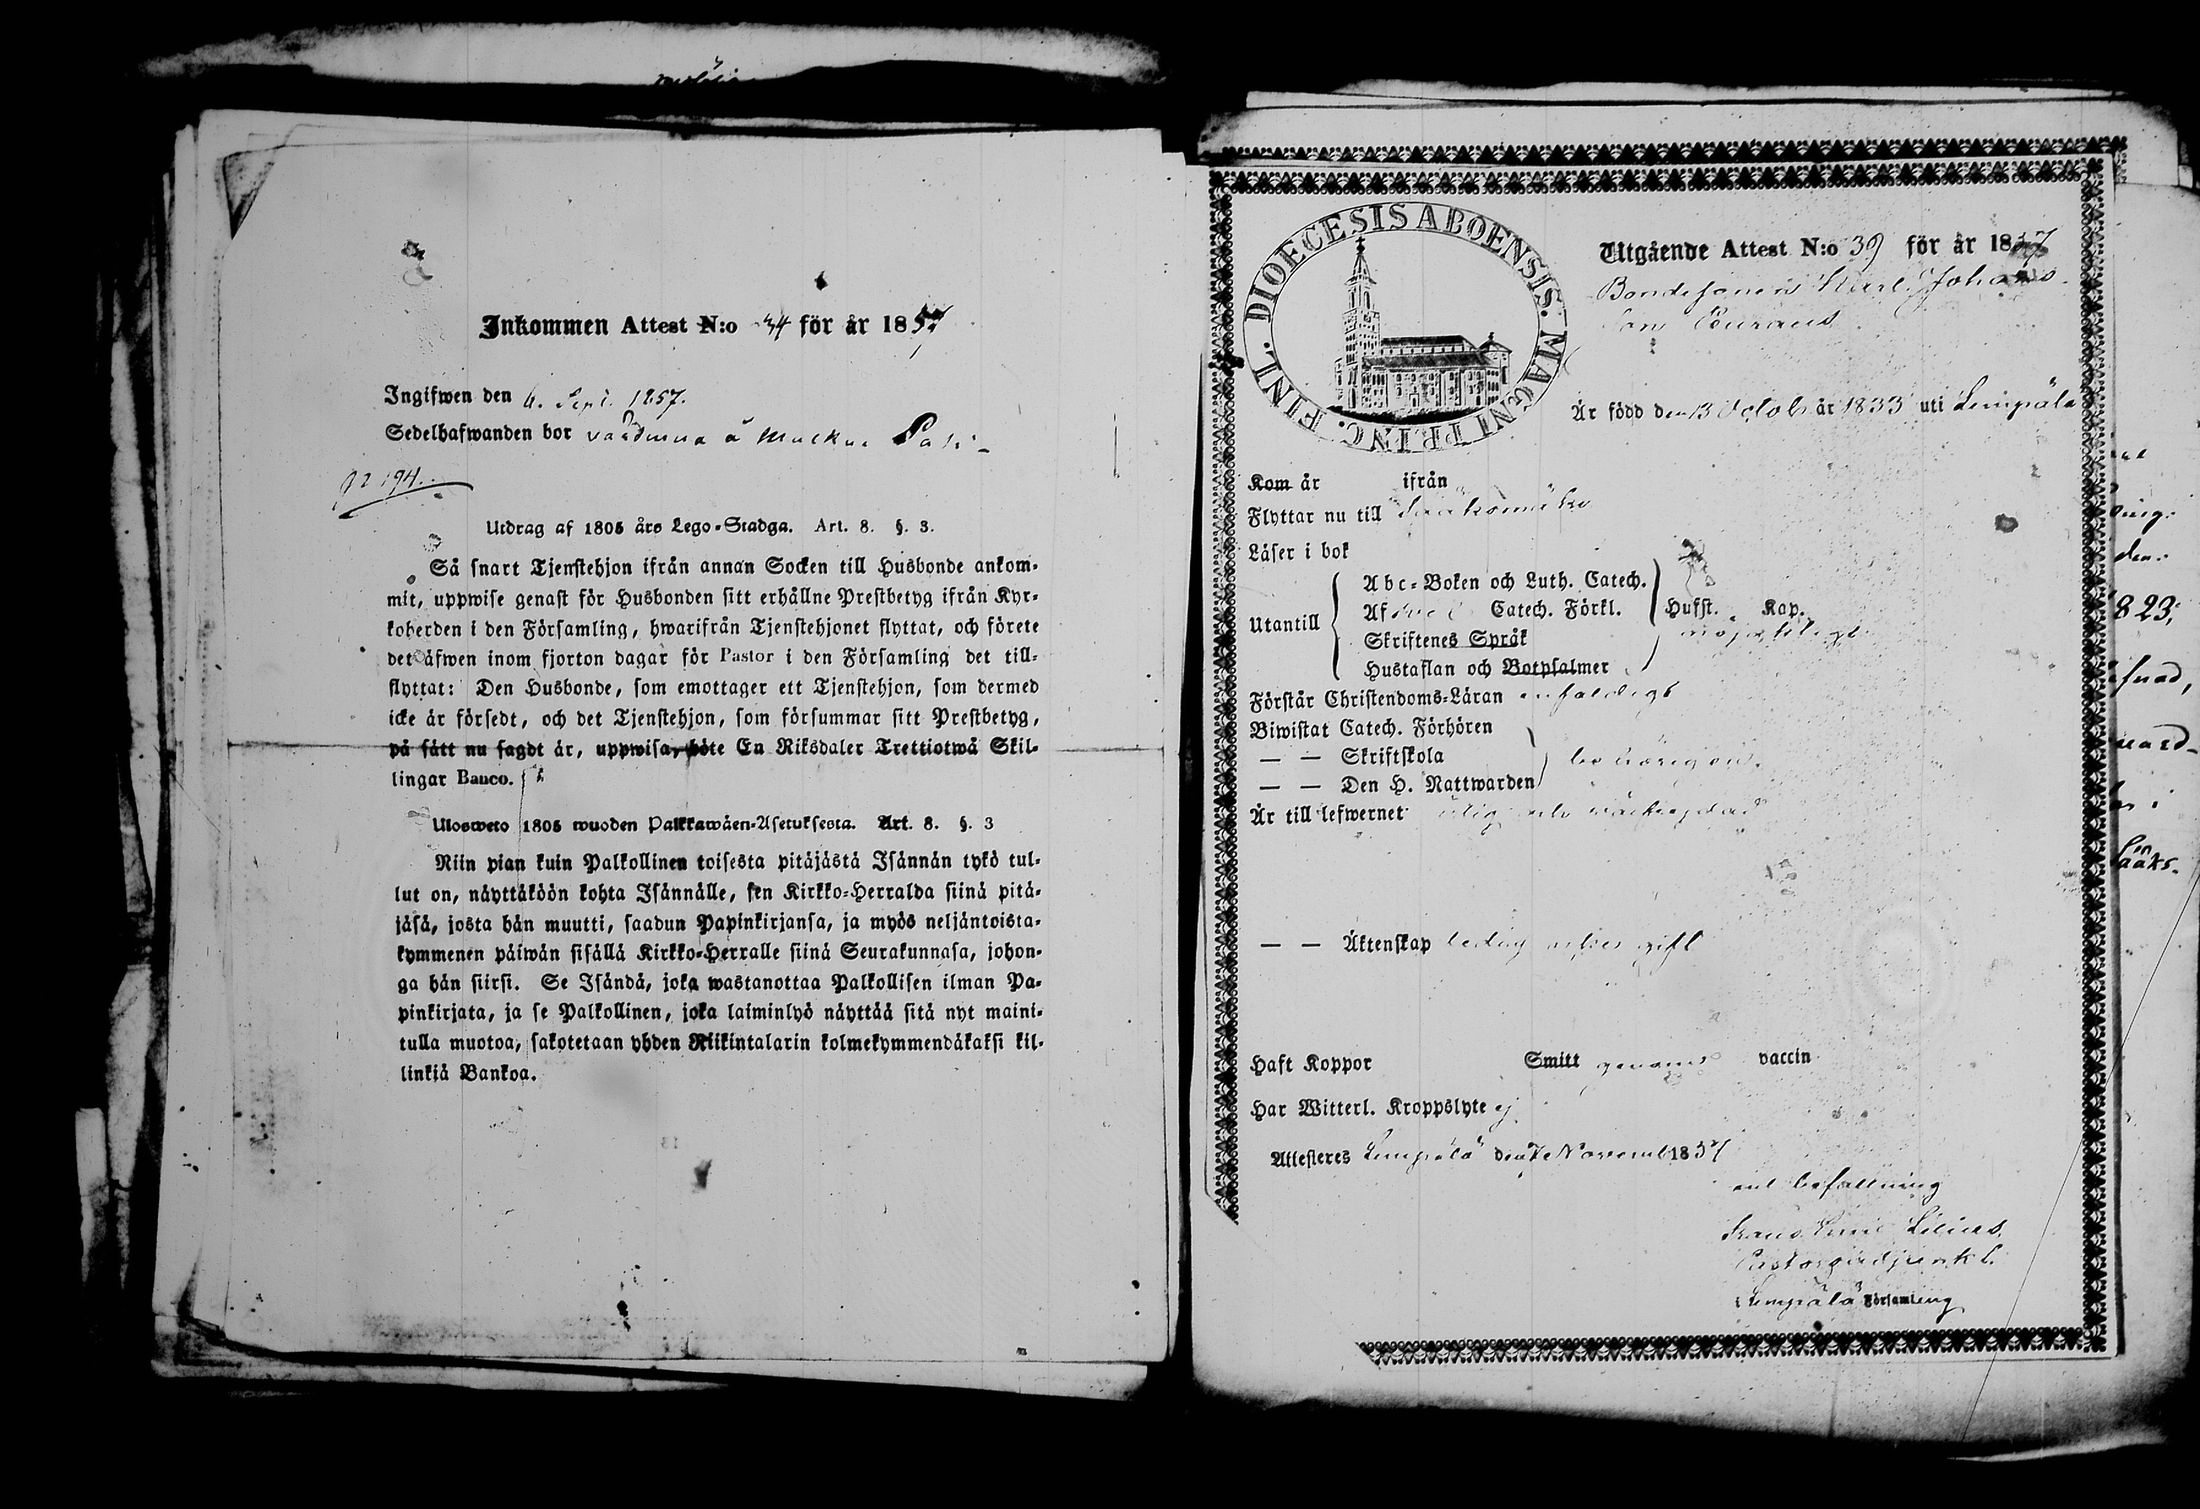 Inkommen Attest N:o 34 för år 1857
Ingifwen den 6. Sept. 1857.
Sedelhafwanden bor
194.
Utdrag af 1805 års Lego-Stadga. Art. 8. §. 3.
Så snart Tjenstehjon ifrån annan Socken till Husbonde ankom-
mit, uppwise genast för Husbonden sitt erhållne Prestbetyg ifrån Kyr-
koherden i den Församling, hwarifrån Tjenstehjonet flyttat, och förete
det äfwen inom fjorton dagar för Pastor i den Församling det till-
flyttat: Den Husbonde, som emottager ett Tjenstehjon, som dermed
icke är försedt, och det Tjenstehjon, som försummar sitt Prestbetyg,
på sätt nu sagdt är, uppwisa, böte En Riksdaler Trettiotwå Skil-
lingar Banco.
Uloswето 1805 wuoden Palkkawäen-Asetuksesta. Art. 8. §. 3
Niin pian kuin Palkollinen toisesta pitäjästä Isännän tykö tul-
lut on, näyttäköön kohta Isännälle, sen Kirkko-Herralda siinä pitä-
jäsä, josta hän muutti, saadun Papinkirjansa, ja myös neljäntoista-
kymmenen päiwän sisällä Kirkko-Herralle siinä Seurakunnasa, johon-
ga hän siirsi. Se Isändä, joka wastanottaa Palkollisen ilman Pa-
pinkirjata, ja se Palkollinen, joka laiminlyö näyttää sitä nyt maini-
tulla muotoa, sakotetaan yhden Riikintalarin kolmekymmendäkaksi kil-
linkiä Bankoa.
DIOECESIS ABOENSIS. MAGNI PRINC. FINL.
Utgående Attest N:o 39 för år 1857
Bondesonen Karl Johans-
son
Är född den 13 Octob. år 1833 uti Lempäla
Kom år ifrån
Flyttar nu till Sääksmäki
Läser i bok
Utantill
Abc-Boken och Luth. Catech.
Af Catech. Förkl.
Skriftenes Språk
Hustaflan och Botpsalmer
Hufst. Kap.
nöjaktligt
Förstår Christendoms-Läran enfaldigt
Biwistat Catech. Förhören
— — Skriftskola
— — Den H. Nattwarden
behörigen.
Är till lefwernet
— — Äktenskap ledig
Haft Koppor Smitt genom vaccin
Har Witterl. Kroppslyte ej
Attesteres Lempälä den Novemb 1857
befallning
Frans
i Lempälä Församling
823,
Sääks-